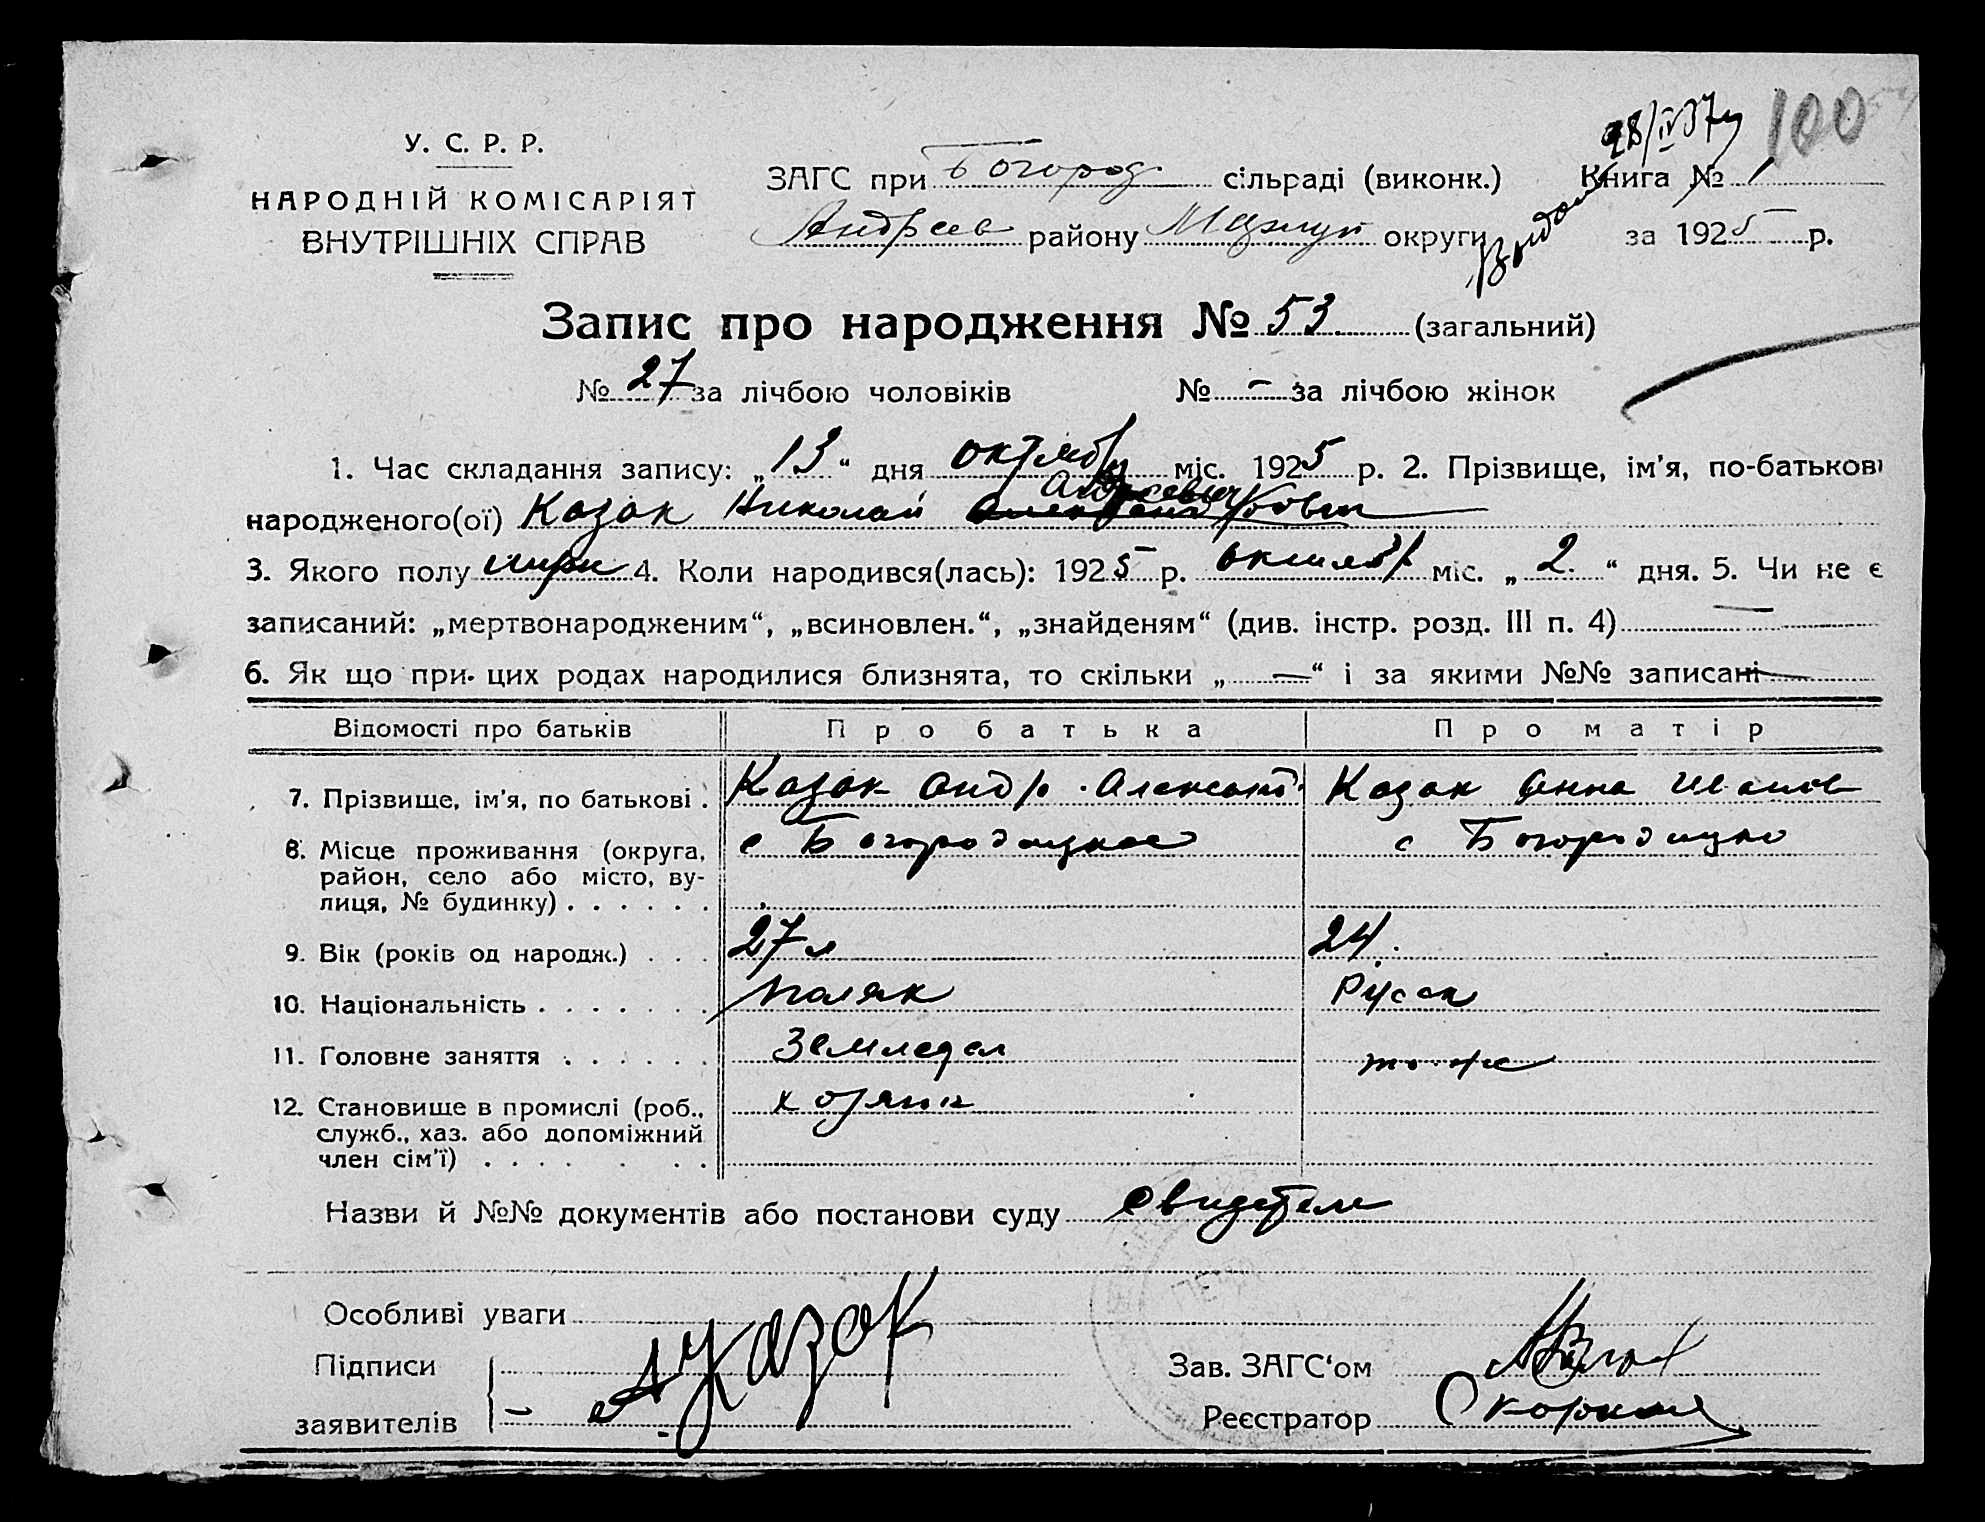 28/IV 37 г 100
У. С. Р. Р.
НАРОДНІЙ КОМІСАРІЯТ
ВНУТРІШНІХ СПРАВ
ЗАГС при Богород. сільраді (виконк.) Книга № 1
Андреев району Мариуп округи за 1925 р.
Запис про народження № 53 (загальний)
№ 27 за лічбою чоловіків № – за лічбою жінок
1. Час складання запису: „13“ дня октября міс. 1925 р. 2. Прізвище, ім’я, по-батькові
Андреевич
народженого(ої) Казак Николай
3. Якого полу 4. Коли народився(лась): 1925 р. октября міс. „2.“ дня. 5. Чи не є
записаний: „мертвонародженим“, „всиновлен.“, „знайденям“ (див. інстр. розд. III п. 4) —
6. Як що при цих родах народилися близнята, то скільки „—“ і за якими №№ записані —
Відомості про батьків Про батька Про матір
7. Прізвище, ім’я, по батькові . Казак Андр. Александ. Казак Анна
8. Місце проживання (округа, район, село або місто, вулиця, № будинку) . . . . . . с Богородицкое с Богородицко
9. Вік (років од народж.) . . . 27 л 24.
10. Національність . . . . . . . Поляк Русск
11. Головне заняття . . . . . . Земледел то-же
12. Становище в промислі (роб., служб., хаз. або допоміжний член сім’ї) . . . . . . . хозяин
Назви й №№ документів або постанови суду свидетели
Особливі уваги
Підписи А Казак Зав. ЗАГС‘ом
заявителів – Реєстратор